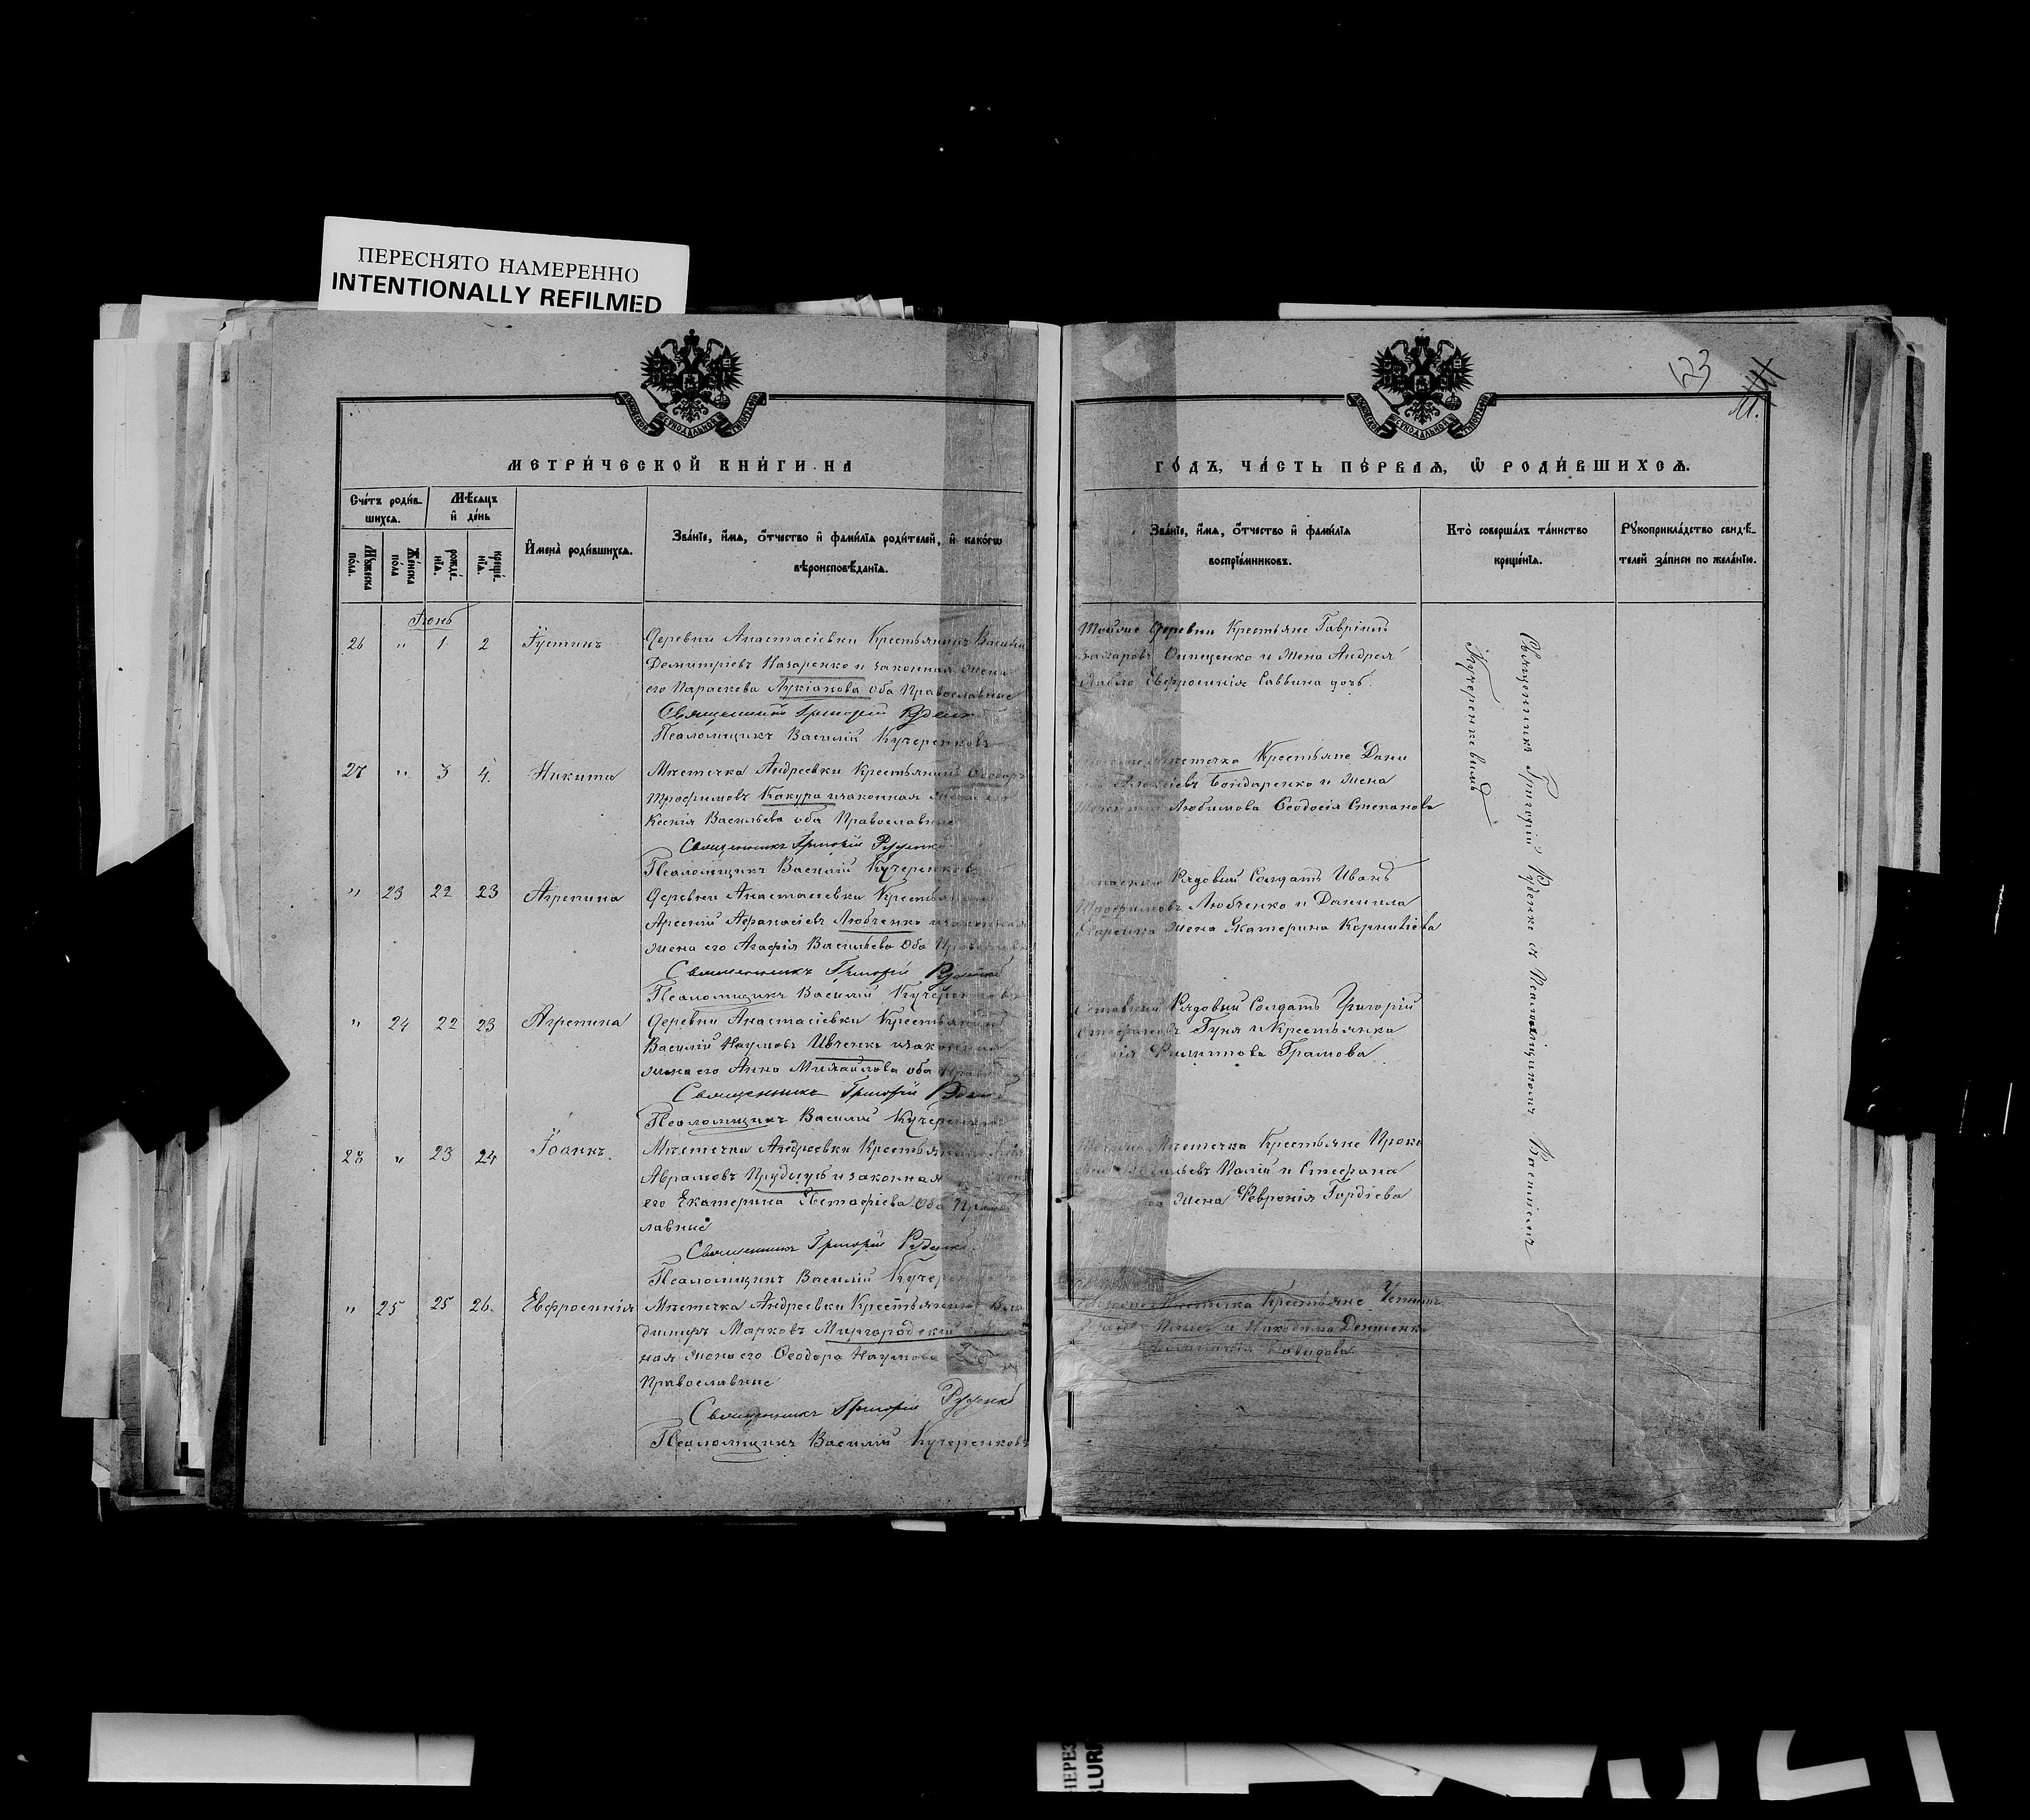 ПЕРЕСНЯТО НАМЕРЕННО
INTENTIONALLY REFILMED
123
МЕТРИ́ЧЕСКОЙ КНИ́ГИ НА
ГО́ДЪ, ЧА́СТЬ ПЕ́РВАЯ, Ѡ РОДИ́ВШИХСЯ.
Сче́тъ роди́в-
шихся.
Мѣ́сяцъ
и де́нь
Мꙋжеска по́ла.
Же́нска по́ла
рожде́нїѧ.
креще́нїѧ.
И҆мена̀ роди́вшихся.
Зва́нїе, и҆́мя, ѻ҆́тчество и҆ фами́лїя роди́телей, и҆ како́гѡ
вѣроисповѣ́данїя.
Зва́нїе, и҆́мя, ѻ҆́тчество и҆ фами́лїя
воспрїе́мниковъ.
Кто̀ соверша́лъ та́инство
креще́нїя.
Рꙋкоприкла́дство свидѣ́-
телей за́писи по жела́нїю.
Іюнь
26 " 1 2 Іустинъ
Деревни Анастасіевки Крестьянинъ Василій
Димитріевъ Назаренко и законная жена
его Параскева Лукіанова оба Православные
Священникъ Григорій Руденко
Псаломщикъ Василій Кучеренковъ
Тойже Деревни Крестьяне Гавріилъ
Захаровъ Онищенко и жена Андрея
Евфросинія Саввина дочь.
27 " 3 4. Никита
Мѣстечка Андреевки Крестьянинъ Ѳеодоръ
Трофимовъ Какура и законная жена его
Ксенія Васильева оба Православные
Священникъ Григорій Руденко
Псаломщикъ Василій Кучеренковъ
Мѣстечка Крестьяне Дани
Алексѣевъ Бондаренко и жена
Любимова Ѳеодосія Степанова
" 23 22 23 Агрепина
Деревни Анастасіевки Крестьянинъ
Арсеній Афанасіевъ Любченко и законная
жена его Агафія Васильева Оба Православные
Священникъ Григорій Руденко
Псаломщикъ Василій Кучеренковъ
Рядовый Солдатъ Иванъ
Трофимовъ Любченко и Даниила
жена Екатерина Корниліева
" 24 22 23 Агрепина
Деревни Анастасіевки Крестьянинъ
Василій Наумовъ Ивченко и законная
жена его Анна Михайлова оба
Священникъ Григорій Руденко
Псаломщикъ Василій Кучеренковъ
Рядовый Солдатъ Григорій
Стефановъ Гуня и Крестьянка
Филиппова Грамова
28 " 23 24 Іоаннъ.
Мѣстечка Андреевки Крестьянинъ
Аврамовъ Прудиусъ и законная жена
его Екатерина Евстафіева Оба Право
славные
Священникъ Григорій Руденко
Псаломщикъ Василій Кучеренковъ
Мѣстечка Крестьяне Проко
Васильевъ Палій и Стефана
жена Февронія Гордіева
" 25 25 26. Евфросинія
Мѣстечка Андреевки Крестьянинъ Вла
димиръ Марковъ Миргородскій
ная жена его Ѳеодора Наумова
Православные
Священникъ Григорій Руденко
Псаломщикъ Василій Кучеренковъ
Мѣстечка Крестьяне
и Никодима Денисенко
Давидова
Священникъ Григорій Руденко съ Псаломщикомъ Василіемъ
Кучеренковымъ